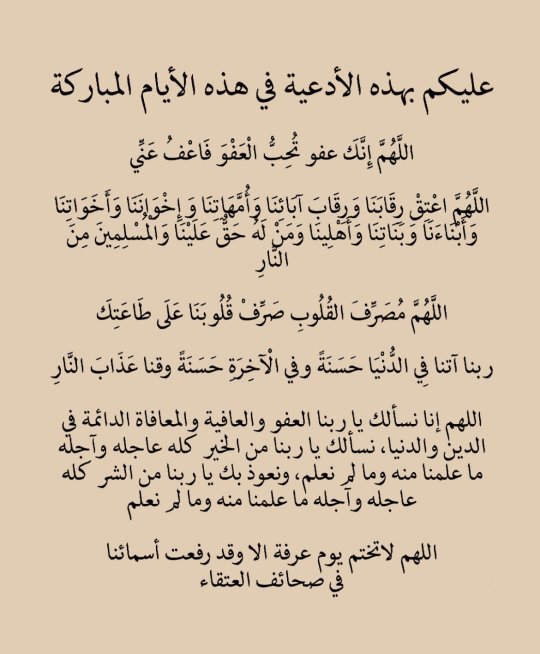 عليكم بهذه الأدعية في هذه الأيام المباركة
اللَّهُمَّ إِنَّكَ عفو تُحِبُّ الْعَفْوَ فَاعْفُ عَنِّي
اللَّهُمَّ اعْتِقْ رِقَابَنَا وَرِقَابَ آبَائِنَا وَأُمَّهَاتِنَا وَإِخْوَانَنَا وَأَخَوَاتِنَا
وَأَبْنَاءَنَا وَبَنَاتِنَا وَأَهْلِينَا وَمَنْ لَهُ حَقٌّ عَلَيْنَا وَالْمُسْلِمِينَ مِنَ
النَّارِ
اللَّهُمَّ مُصَرِّفَ القُلُوبِ صَرِّفْ قُلُوبَنَا عَلَى طَاعَتِكَ
ربنا آتنا فِي الدُّنْيَا حَسَنَةً وفي الْآخِرَةِ حَسَنَةً وقنا عَذَابَ النَّارِ
اللهم إنا نسألك يا ربنا العفو والعافية والمعافاة الدائمة في
الدين والدنيا، نسألك يا ربنا من الخير كله عاجله وآجله
ما علمنا منه وما لم نعلم، ونعوذ بك يا ربنا من الشر كله
عاجله وآجله ما علمنا منه وما لم نعلم
اللهم لاتختم يوم عرفة الا وقد رفعت أسمائنا
في صحائف العتقاء